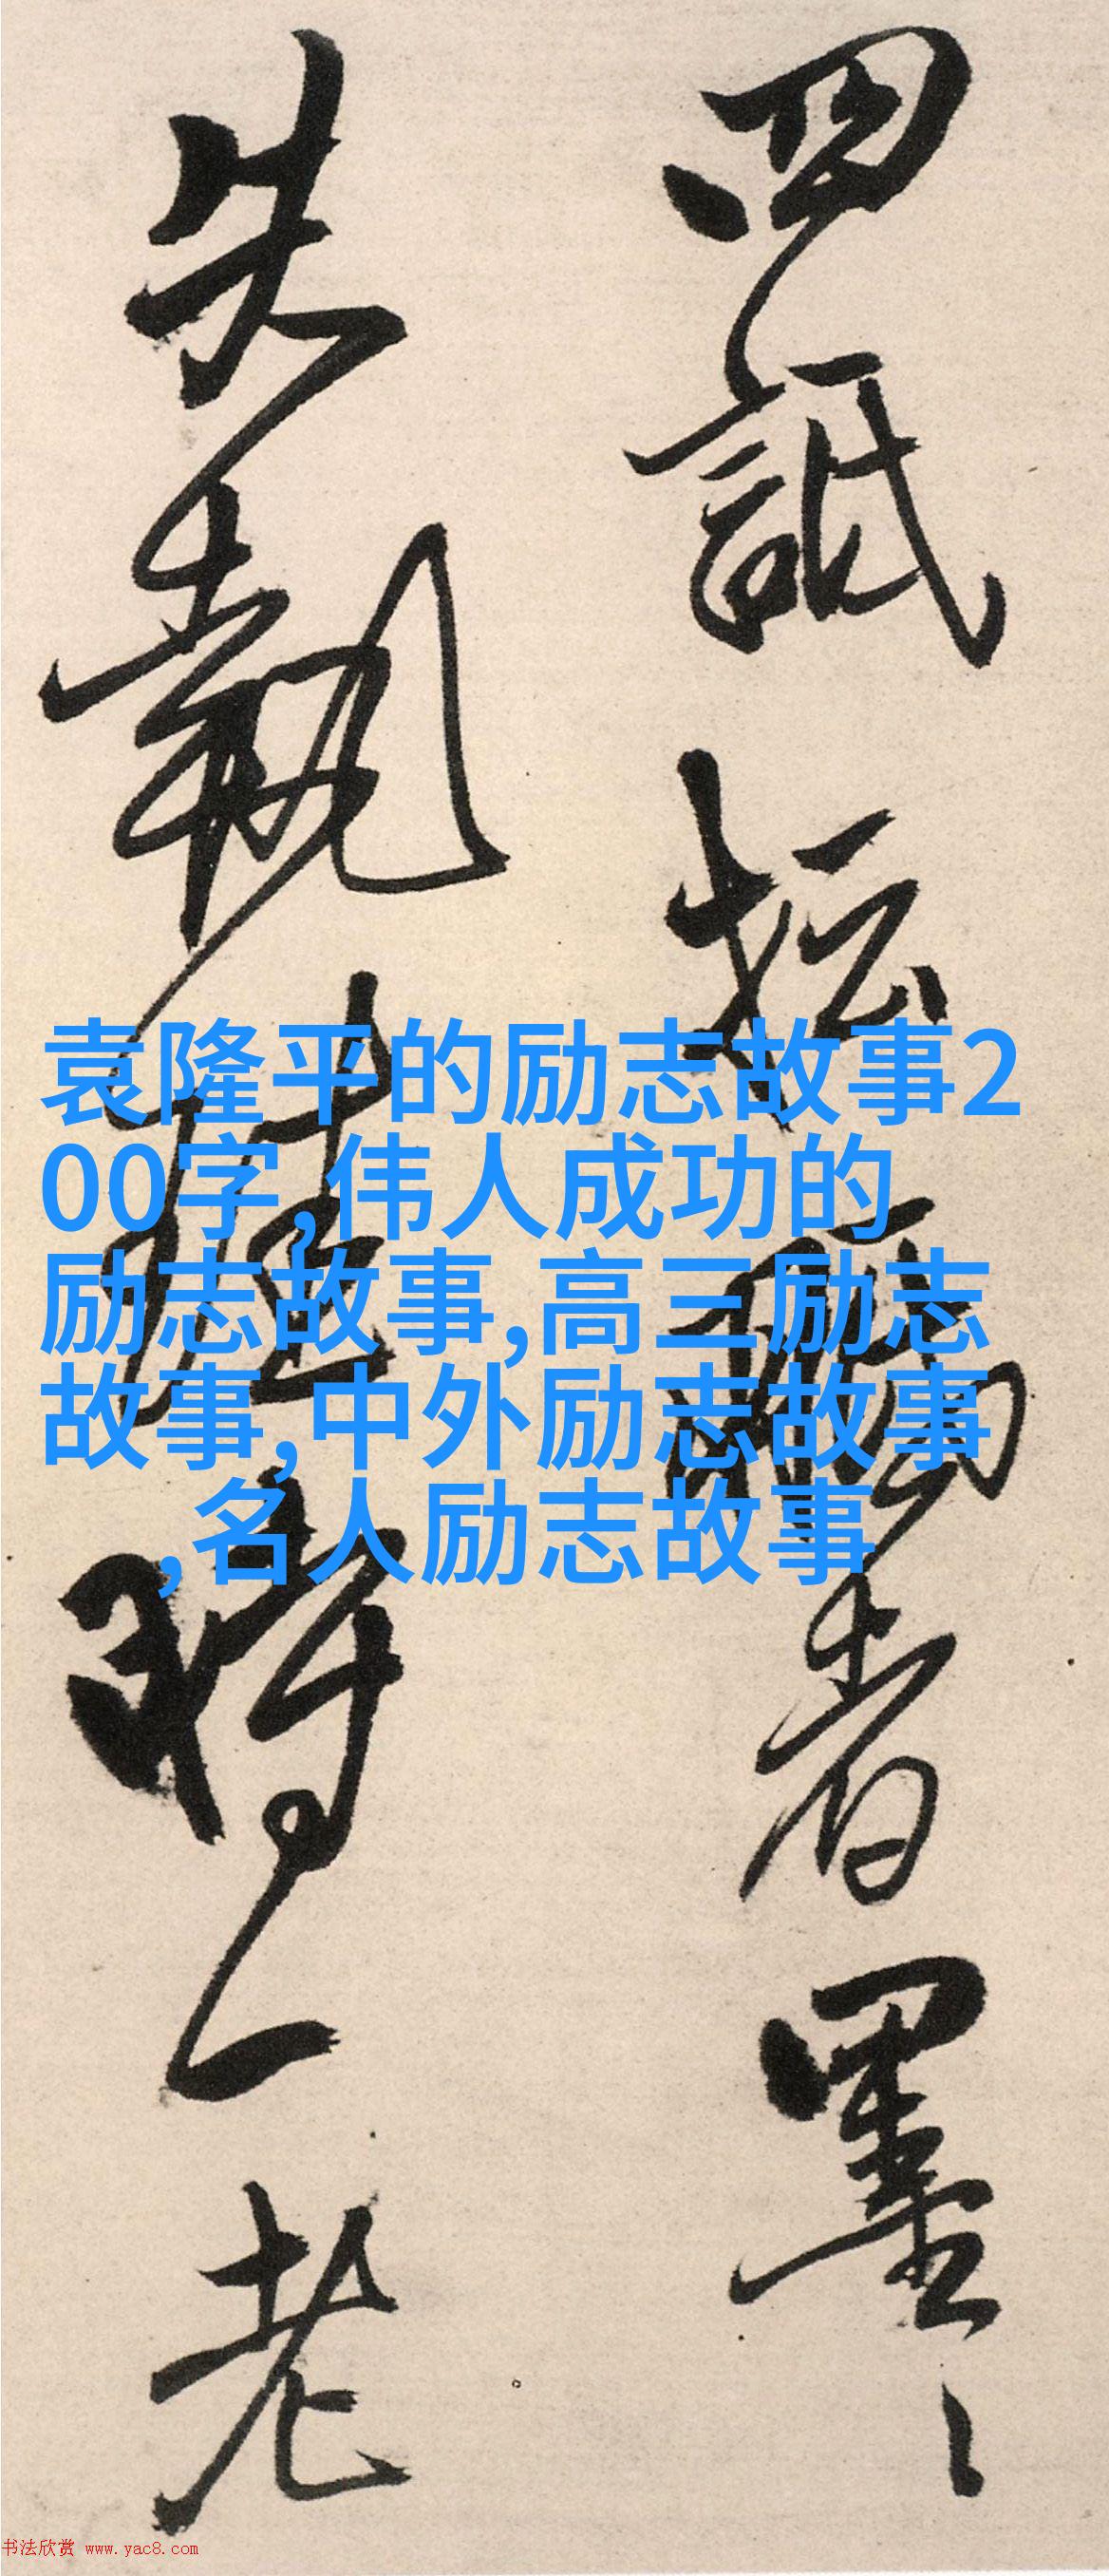 四詆坛
者墨
失執
時一老
袁隆平的励志故事2
00字,伟人成功的
励志故事,高三励志
故事,中外励志故事
,名人励志故事
书法欣赏 www.yac8.com